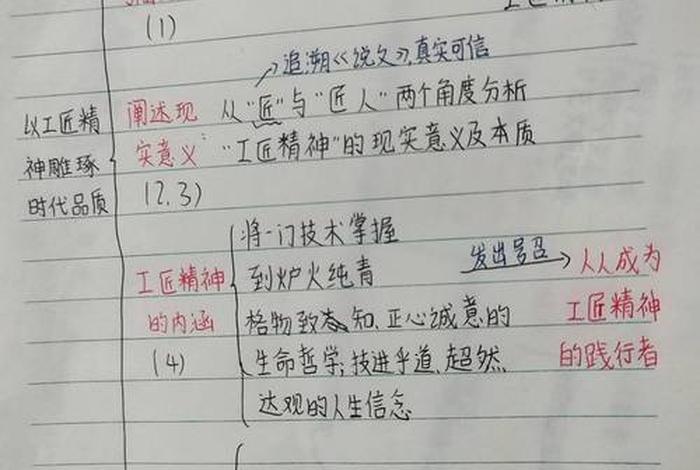 (1)
追溯《说文》,真实可信
以工匠精
神雕琢
时代品质
阐述现
实意义:
(2.3)
从"匠"与"匠人"两个角度分析
"工匠精神"的现实意义及本质
工匠精神
的内涵
(4)
将一门技术掌握
到炉火纯青
格物致知、正心诚意的
生命哲学;技进乎道、超然
达观的人生信念
发出号召
人人成为
工匠精神
的践行者